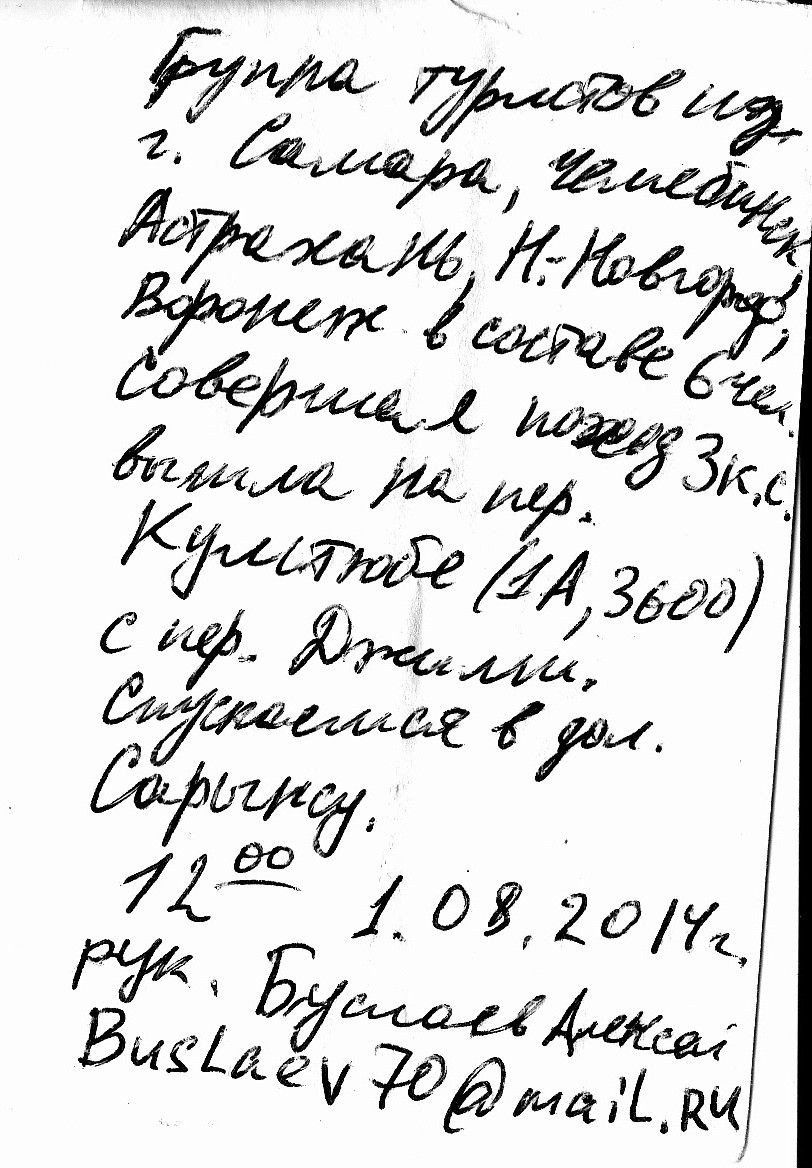 Группа туристов из
г. Самара, Челябинск,
Астрахань, Н.-Новгород,
Воронеж в составе 6 чел.
совершая поход 3 к.с.
вышла на пер.
Кумтюбе (1А, 3600)
с пер. Джилли.
Спускаемся в дол.
Сарынсу.
12 00 1.08.2014г.
рук. Буслаев Алексей
Buslaev70@mail.ru